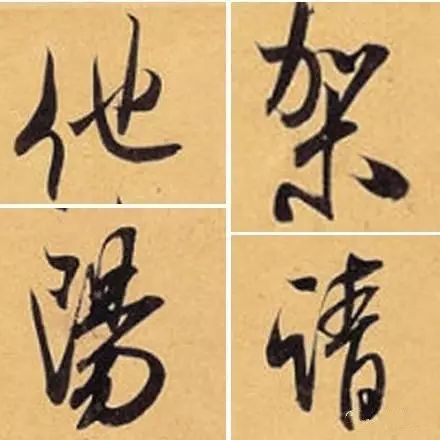 他架
陽請